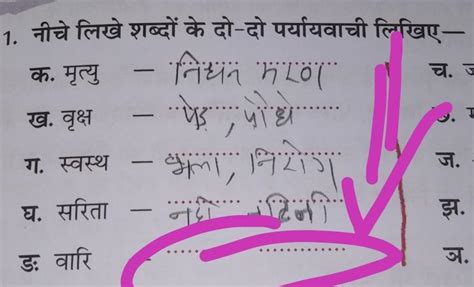 1. नीचे लिखे शब्दों के दो-दो पर्यायवाची लिखिए—
क. मृत्यु – निधन मरण च.
ख. वृक्ष – पेड़ , पौधे
ग. स्वस्थ – भला, निरोग ज.
घ. सरिता – नदी झ.
ङ वारि – ञ.